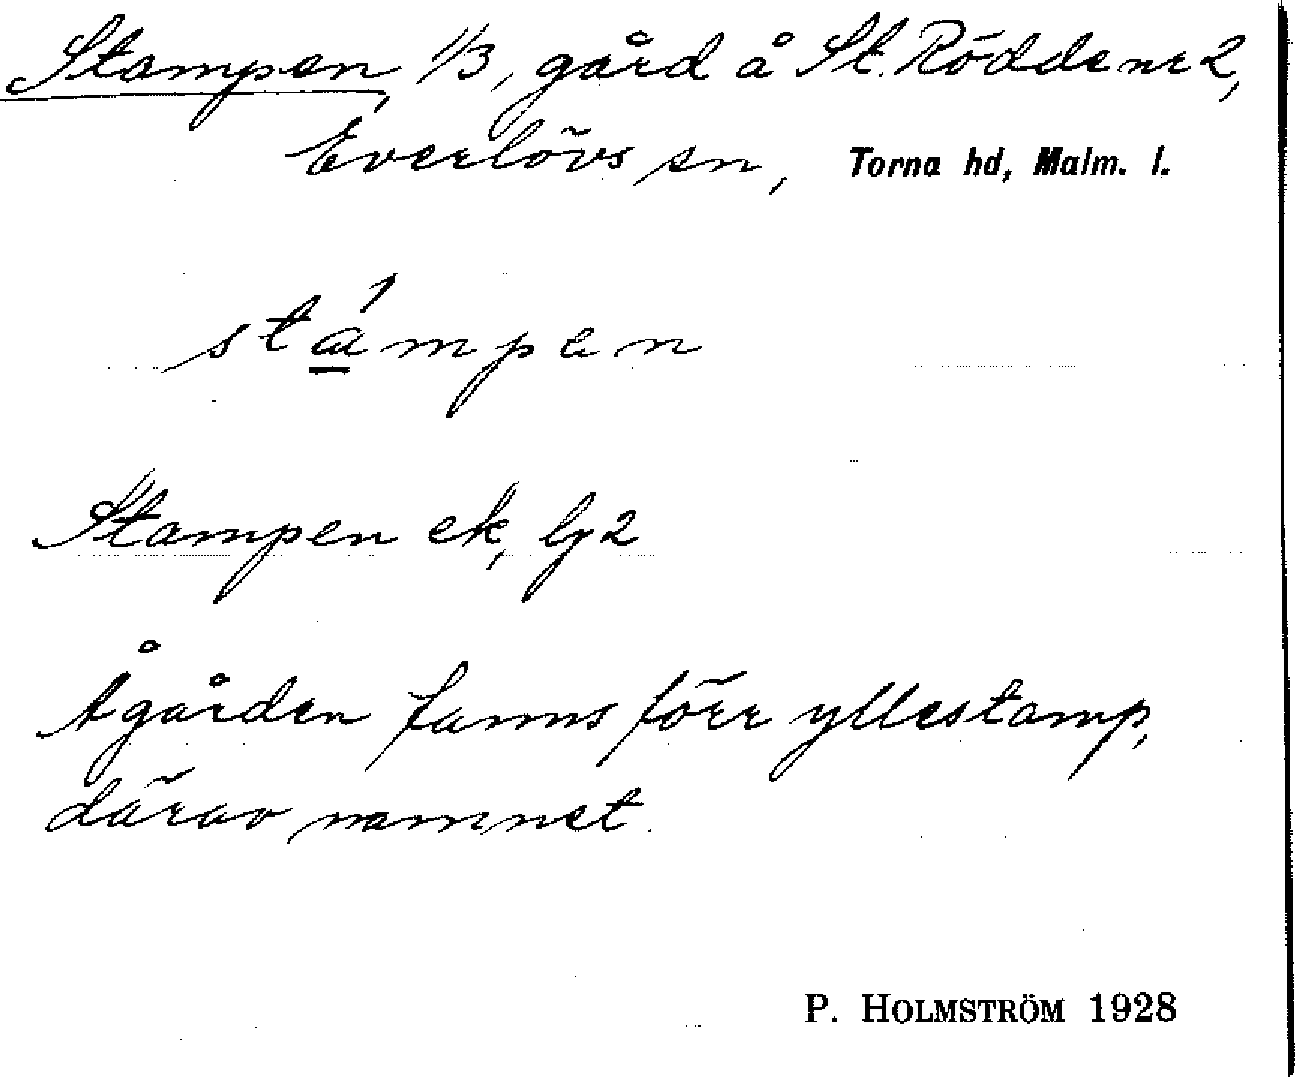 Stampen, 1/3, gård å St. Rödde nr 2,
Everlövs sn, Torna hd, Malm. l.
stámpen
Stampen ek, lj 2
Å gården fanns förr yllestamp,
därav namnet.
P. HOLMSTRÖM 1928